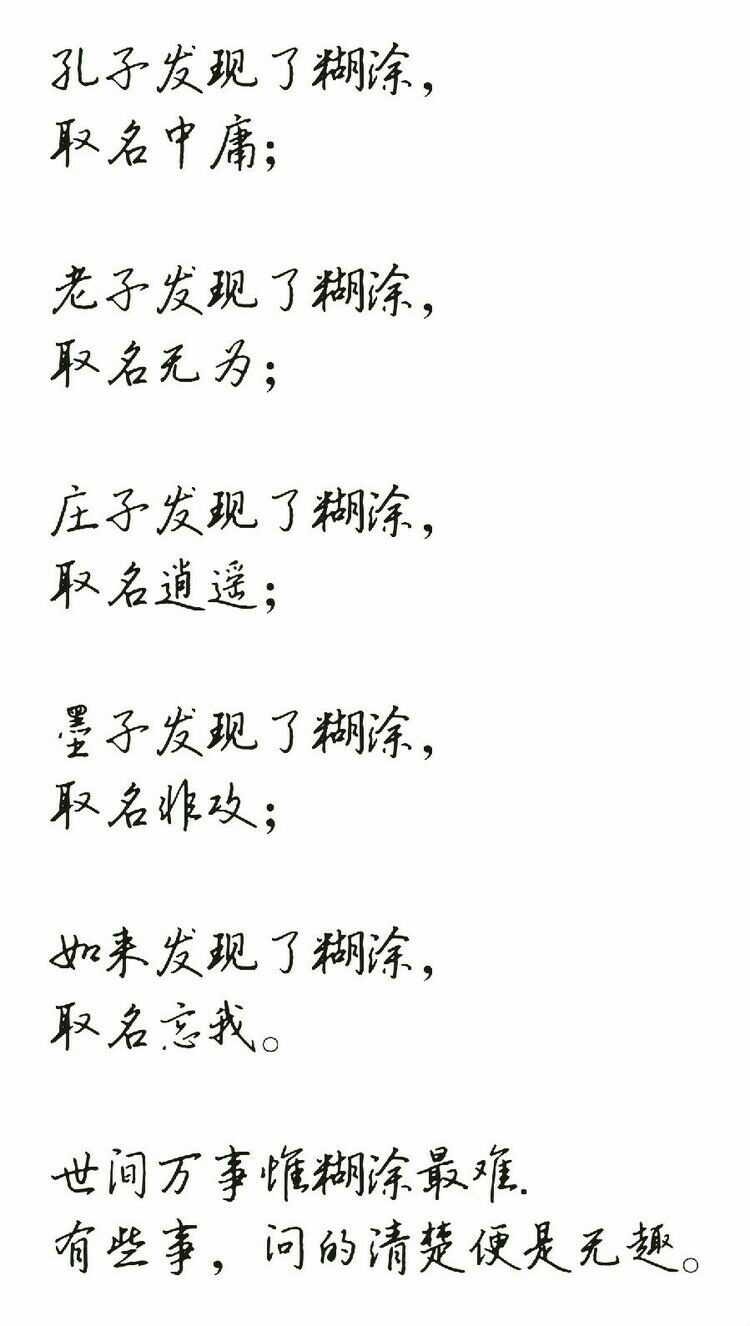 孔子发现了糊涂，
取名中庸；
老子发现了糊涂，
取名无为；
庄子发现了糊涂，
取名逍遥；
墨子发现了糊涂，
取名非攻；
如来发现了糊涂，
取名忘我。
世间万事惟糊涂最难.
有些事，问的清楚便是无趣。